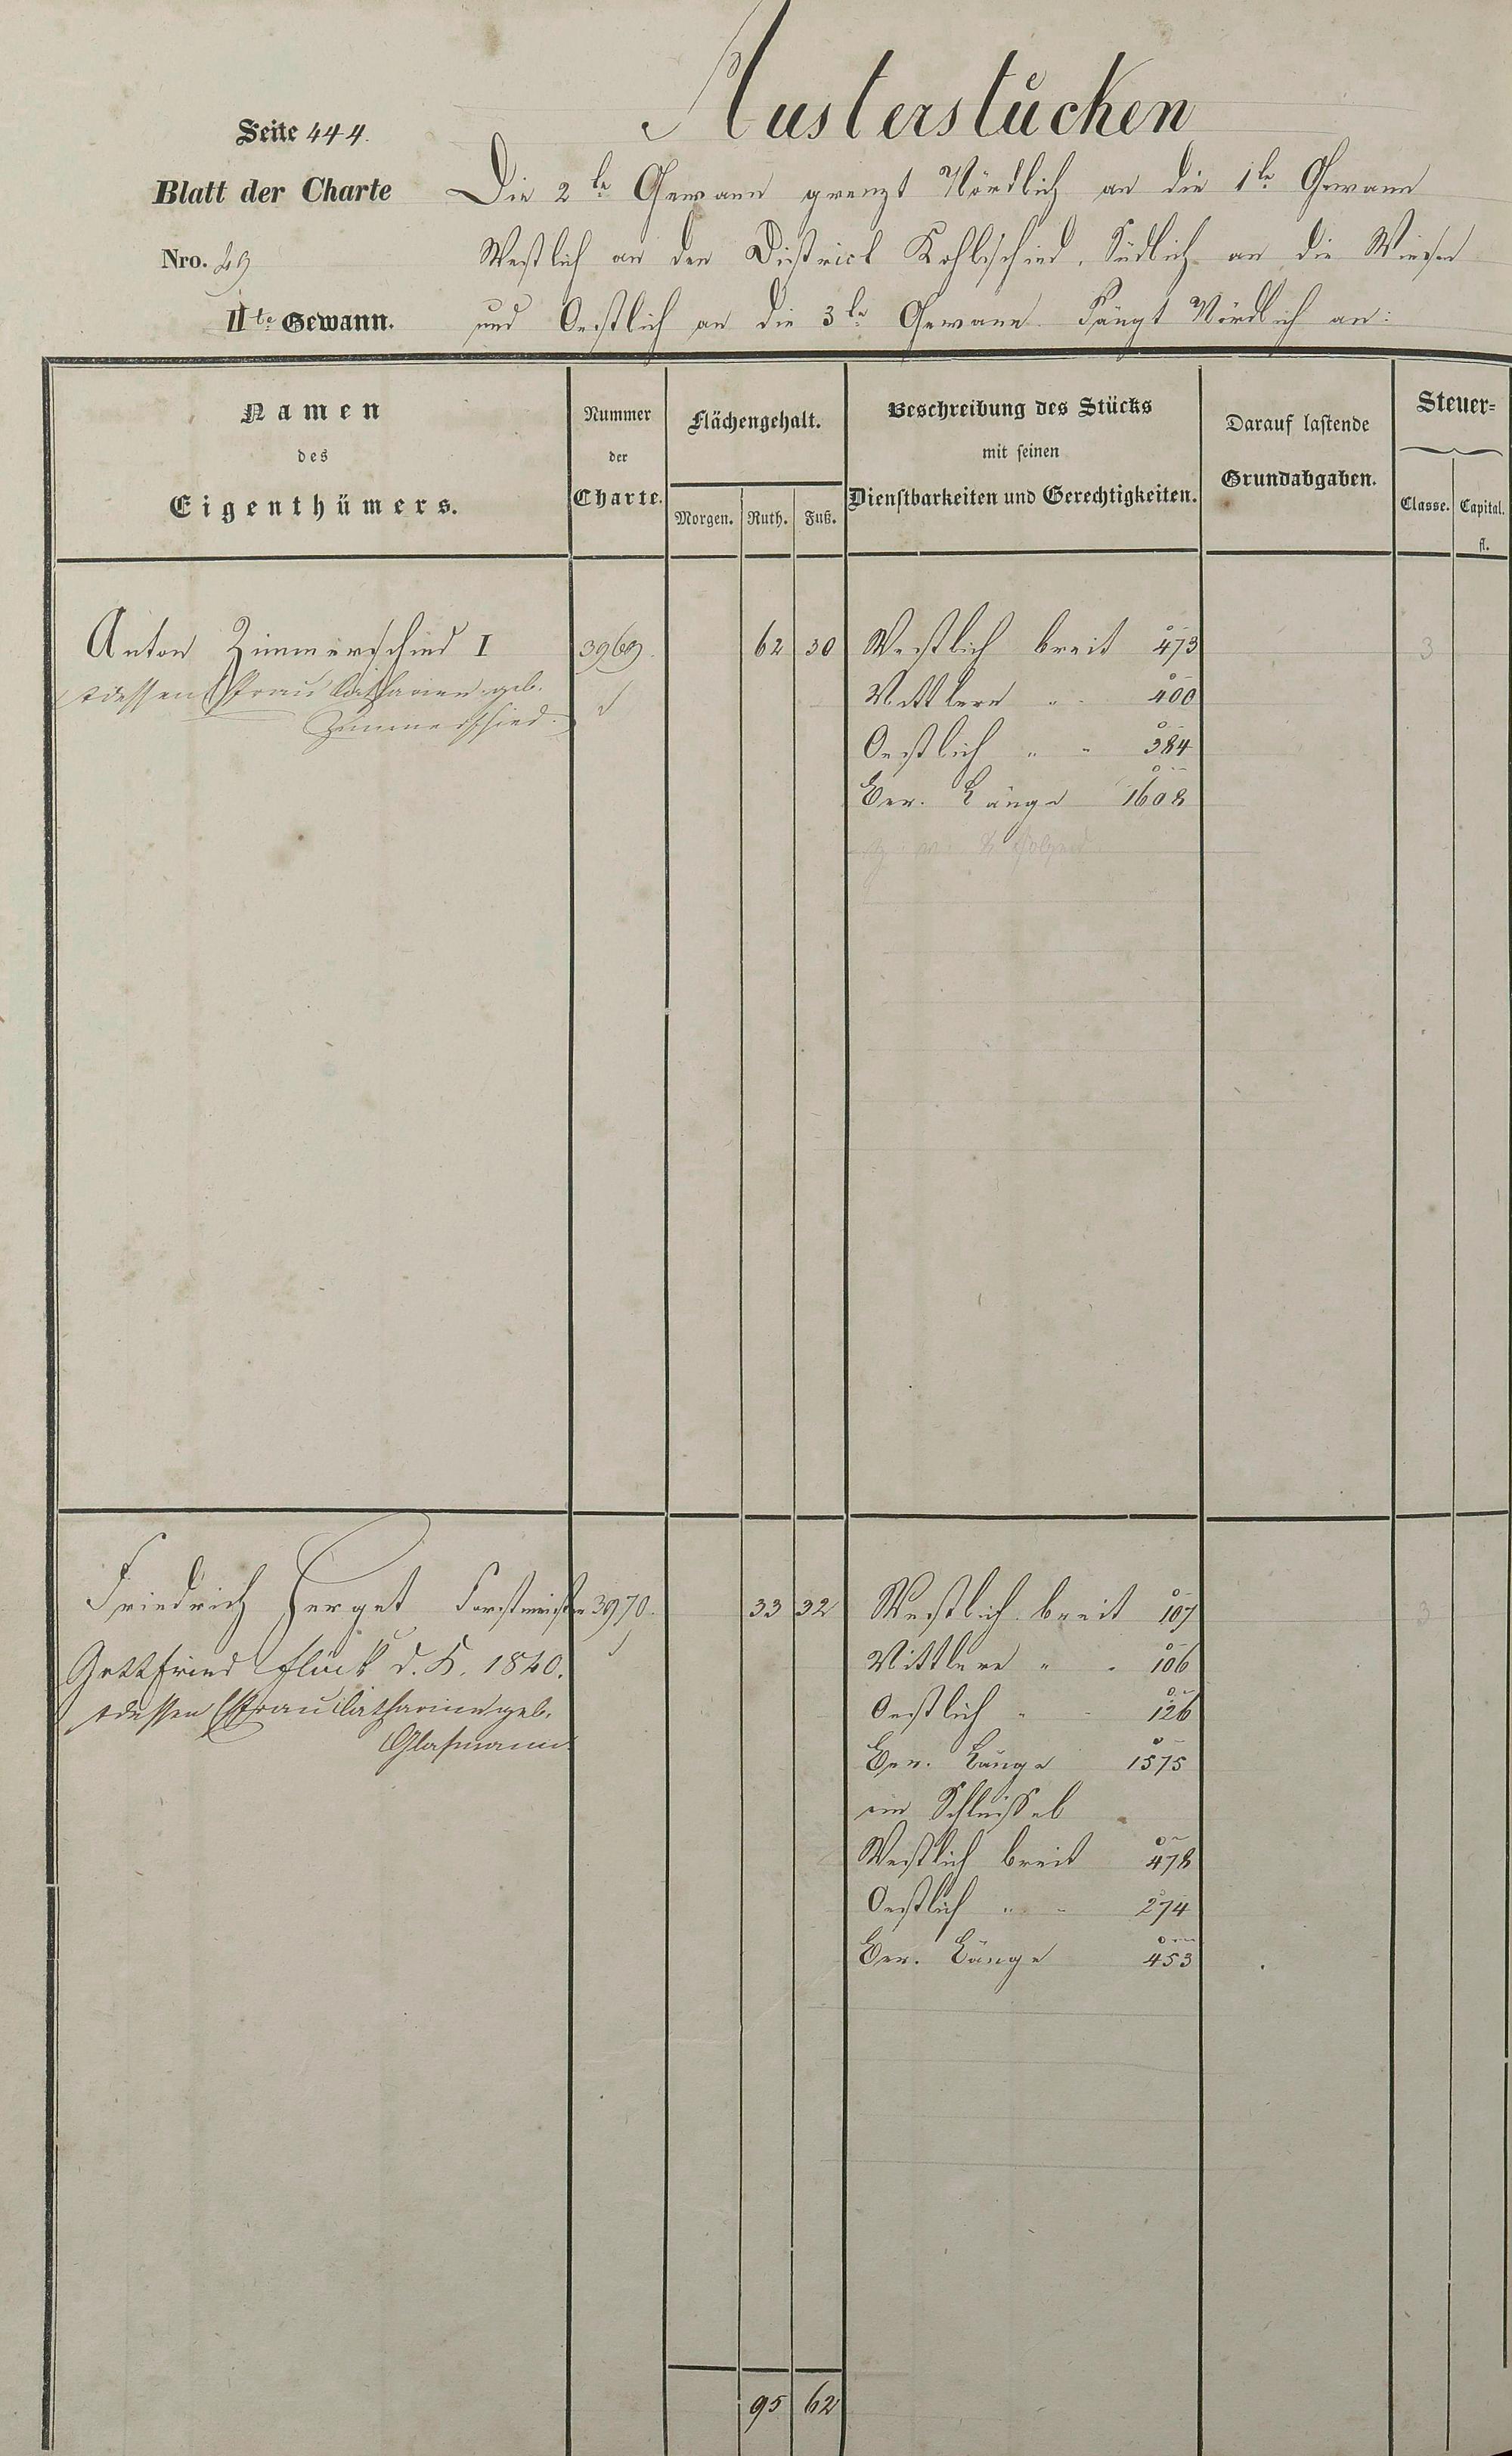 Austerstücken
Seite 444.
Blatt der Charte
Nro. 49
IIte Gewann.
Die 2te Gewann grenzt Nördlich an die 1te Gewann
Westlich an den District Kohlschied, Südlich an die Wiesen
und Oestlich an die 3te Gewann. Fängt Nördlich an:
Namen
des
Eigenthümers.
Nummer
der
Charte.
Flächengehalt.
Morgen. Ruth. Fuß.
Beschreibung des Stücks
mit seinen
Dienstbarkeiten und Gerechtigkeiten.
Darauf lastende
Grundabgaben.
Steuer-
Classe. Capital.
fl.
Anton Zimmerschied I 3969. 62 30 Westlich breit 473 3
dessen Frau Catharine geb.
Zimmerschied.
Mittlere " - 400
Oestlich " - 384
Ver. Länge 1608
Friedrich Herget Forstmeister 3970. 33 32 Westlich breit 107 3
Gottfried Flück d. K. 1840.
dessen Frau Catharine geb.
Glasmann.
Mittlere " - 106
Oestlich " - 126
Ver. Länge 1575
ein Schlüssel
Westlich breit 478
Oestlich " - 274
Ver. Länge 453
95 62